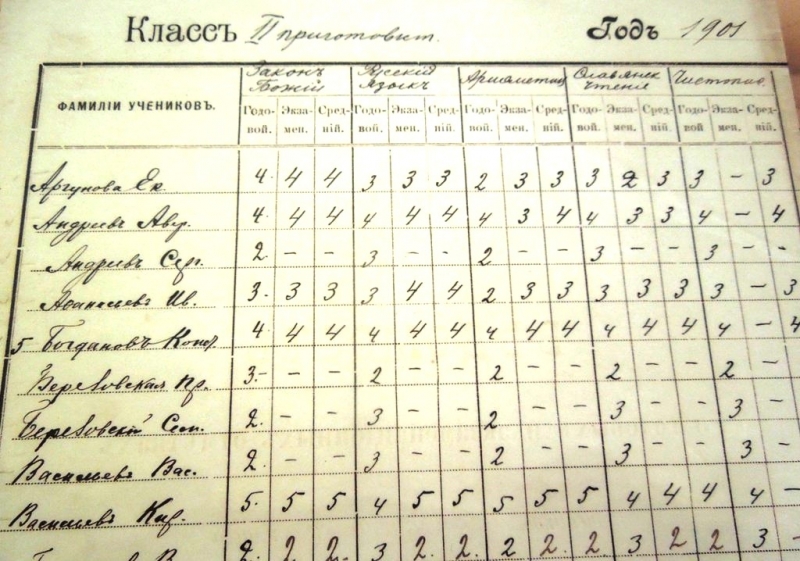 Классъ II приготовит. Годъ 1901
ФАМИЛІИ УЧЕНИКОВЪ. Законъ Божій Русскій Языкъ Ариѳметик Славянск Чтеніе Чистопис.
Годовой. Экзамен. Средній. Годовой. Экзамен. Средній. Годовой. Экзамен. Средній. Годовой. Экзамен. Средній. Годовой. Экзамен. Средній.
Аргунова Ек. 4 4 4 3 3 3 2 3 3 3 2 3 3 – 3
Андреевъ Авг. 4 4 4 4 4 4 4 3 4 4 3 3 4 – 4
Андреевъ Сер. 2 – – 3 – – 2 – – 3 – – 3 – -
Аѳанасьевъ Ив. 3 3 3 3 4 4 2 3 3 3 3 3 3 – 3
5 Богдановъ Конст. 4 4 4 4 4 4 4 4 4 4 4 4 4 – 4
Березовская Пр. 3 – – 2 – – 2 – – 2 – – 2 –
Березовскій Сем. 2 – – 3 – – 2 – – 3 – – 3 –
Васильевъ Вас. 2 – – 3 – – 2 – – 3 – – 3 –
Васильевъ Кир. 5 5 5 4 5 5 5 5 5 5 4 4 4 4 –
2 2 2 3 2 2 2 2 2 2 3 2 2 3 –